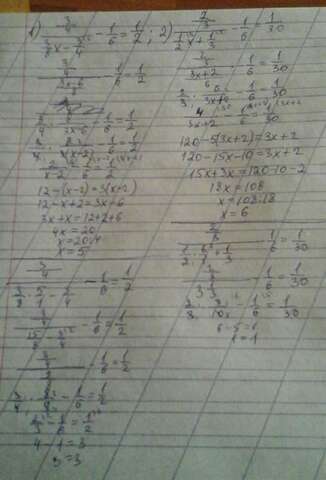 1) (3/4)/(3/8 x - 3/4) - 1/6 = 1/2 ;
(3/4)/((3x-6)/8) - 1/6 = 1/2
3/4 · 8/(3x-6) - 1/6 = 1/2
3/4 · 8/(3(x-2)) - 1/6 = 1/2
2/(x-2) - 1/6 = 1/2
12-(x-2)=3(x-2)
12-x+2=3x-6
3x+x=12+2+6
4x=20
x=20:4
x=5
(3/4)/(3/8 · 5/1 - 3/4) - 1/6 = 1/2
(3/4)/(15/8 - 3/4) - 1/6 = 1/2
- 1/6 = 1/2
3/4 · - 1/6 = 1/2
- 1/6 = 1/2
4-1=3
3=3
2) (2/3)/(1/2 x + 1/3) - 1/6 = 1/30
3x+2 - 1/6 = 1/30
2/3 · 6/(3x+2) - 1/6 = 1/30
4/(3x+2) - 1/6 = 1/30
120-5(3x+2)=3x+2
120-15x-10=3x+2
15x+3x=120-10-2
18x=108
x=108:18
x=6
(2/3)/(1/2 · 6/1 + 1/3) - 1/6 = 1/30
- 1/6 = 1/30
2/3 · 3/10 - 1/6 = 1/30
6-5=1
1=1